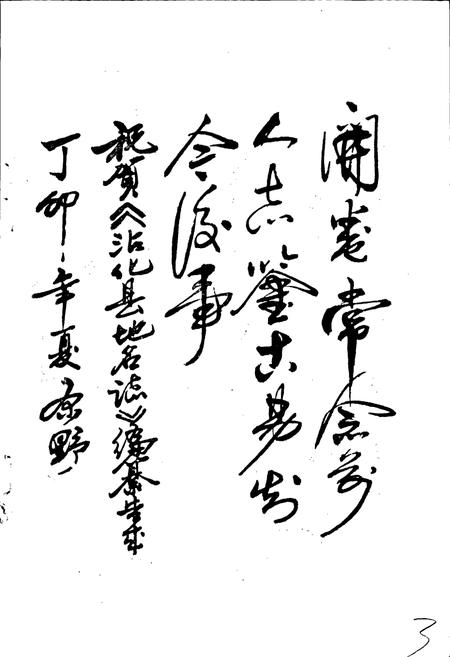 開卷常念前
人志鑒古易知
今後事
祝賀《沾化县地名誌》编纂告成
丁卯年夏原野
3